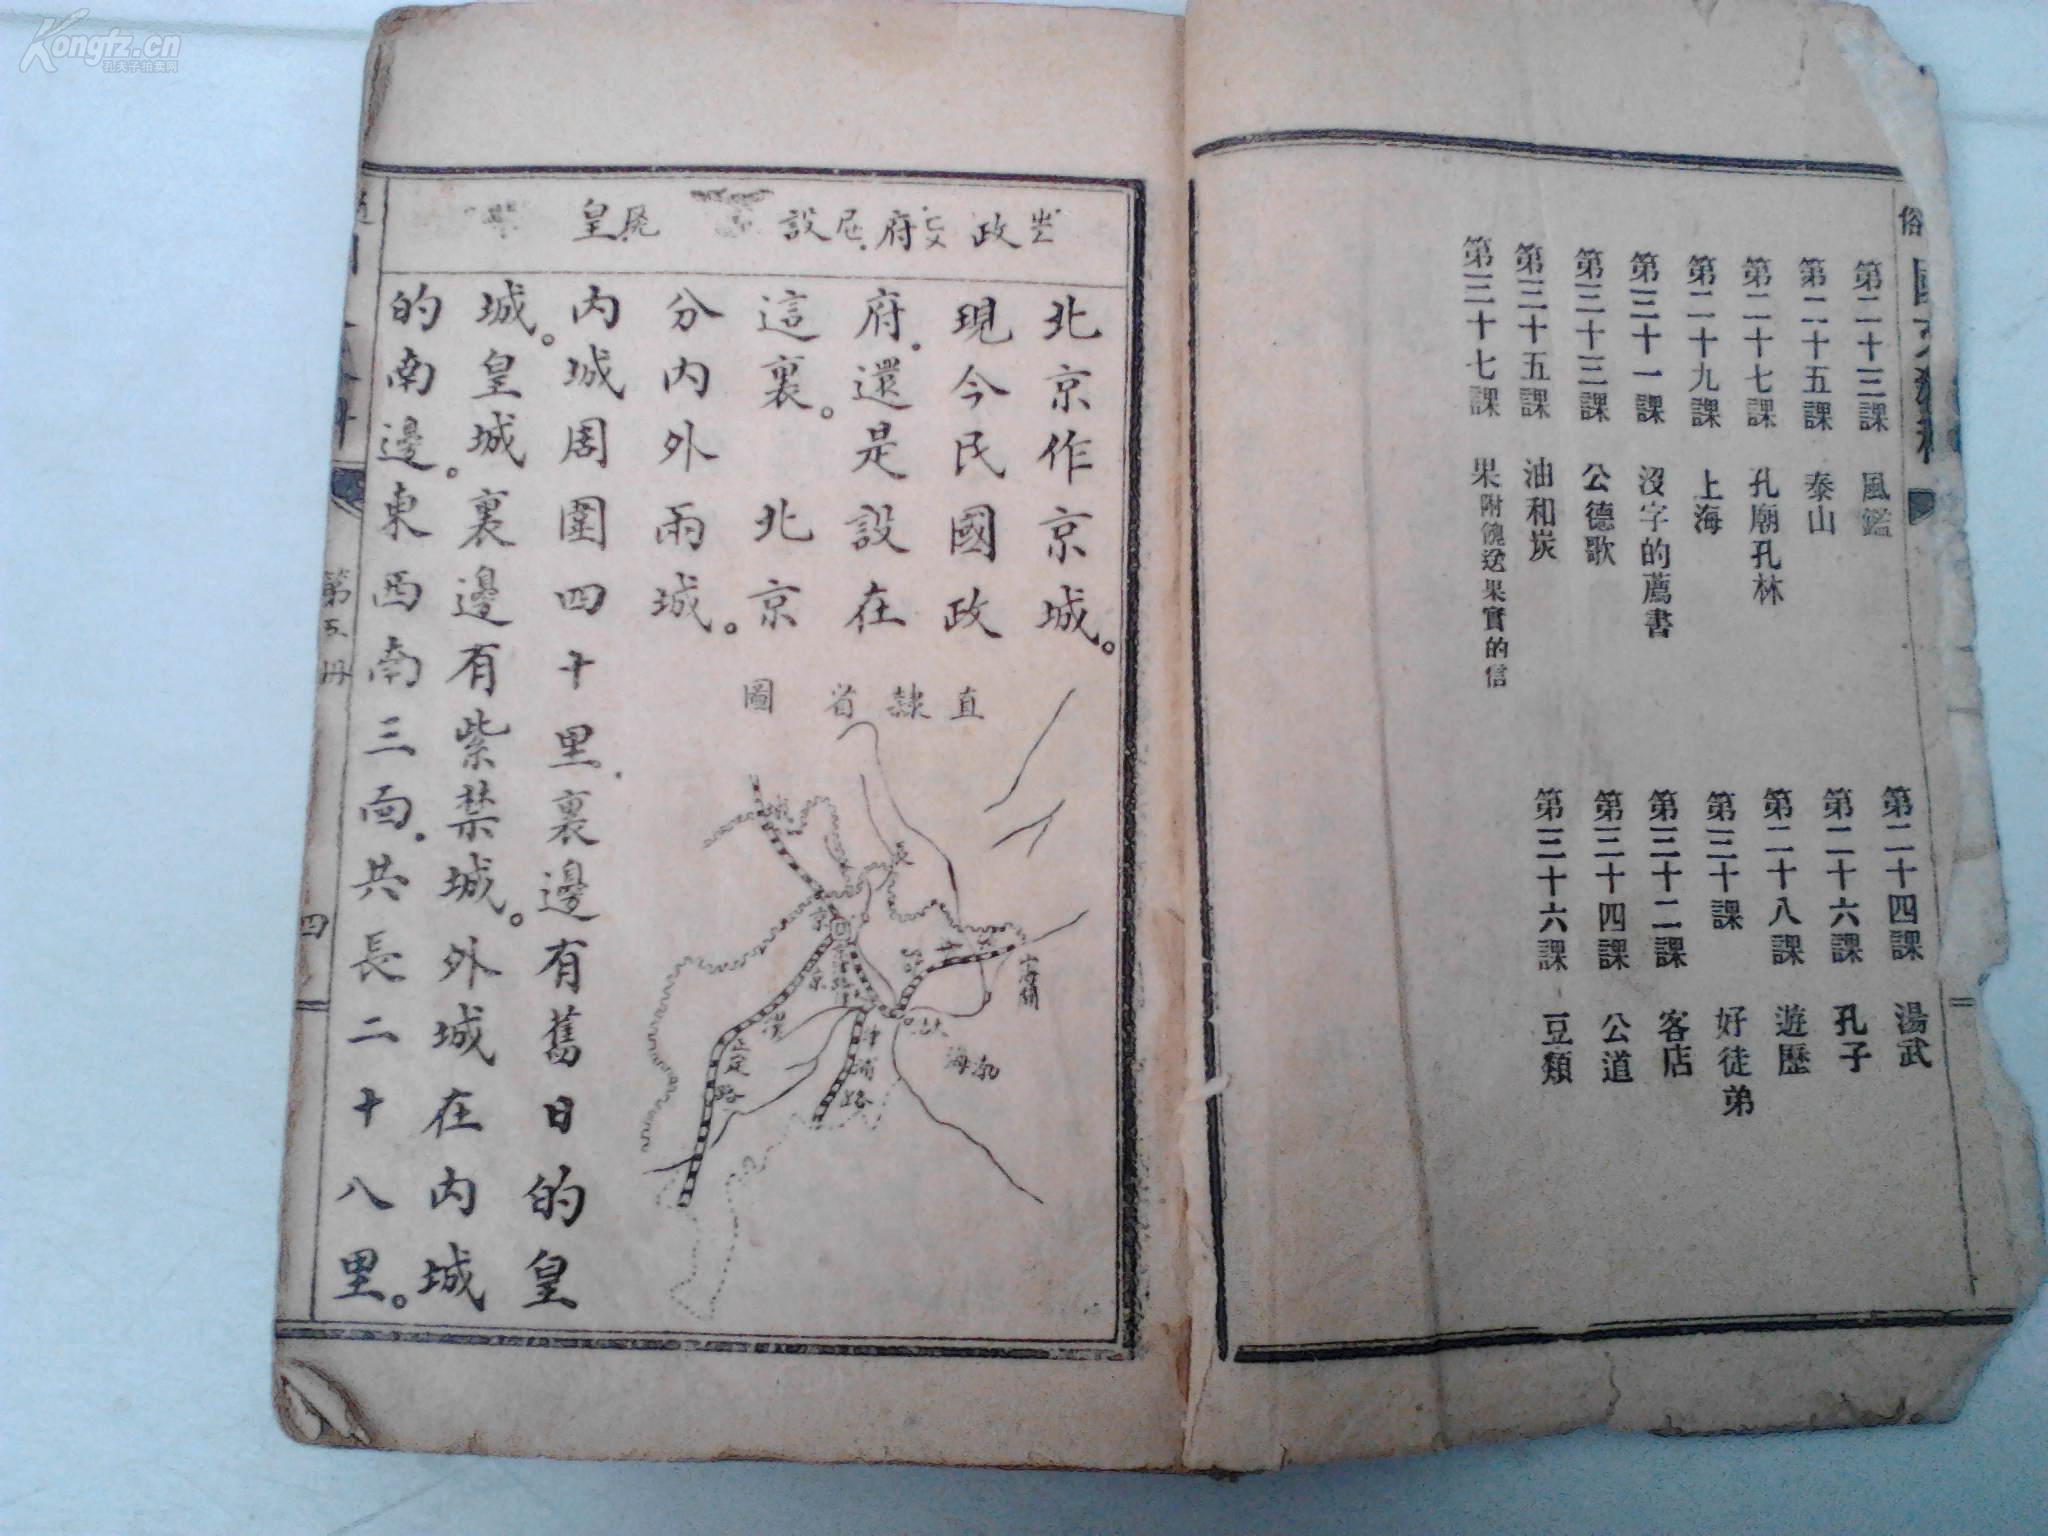 Kongfz.cn
孔夫子拍卖网
俗
第二十三課 風鑑
第二十四課 湯武
第二十五課 泰山
第二十六課 孔子
第二十七課 孔廟孔林
第二十八課 遊歷
第二十九課 上海
第三十課 好徒弟
第三十一課 沒字的薦書
第三十二課 客店
第三十三課 公德歌
第三十四課 公道
第三十五課 油和炭
第三十六課 豆類
第三十七課 果附餽送果實的信
政
府
設
皇
北京作京城。
現今民國政
府.還是設在
這裏。 北京
分內外兩城。
內城周圍四十里.裏邊有舊日的皇
城。皇城裏邊有紫禁城。外城在內城
的南邊.東西南三面.共長二十八里。
直隸省圖
長
城
京
京
漢
正定路
津浦路
大沽
渤海
山海關
第五冊
四